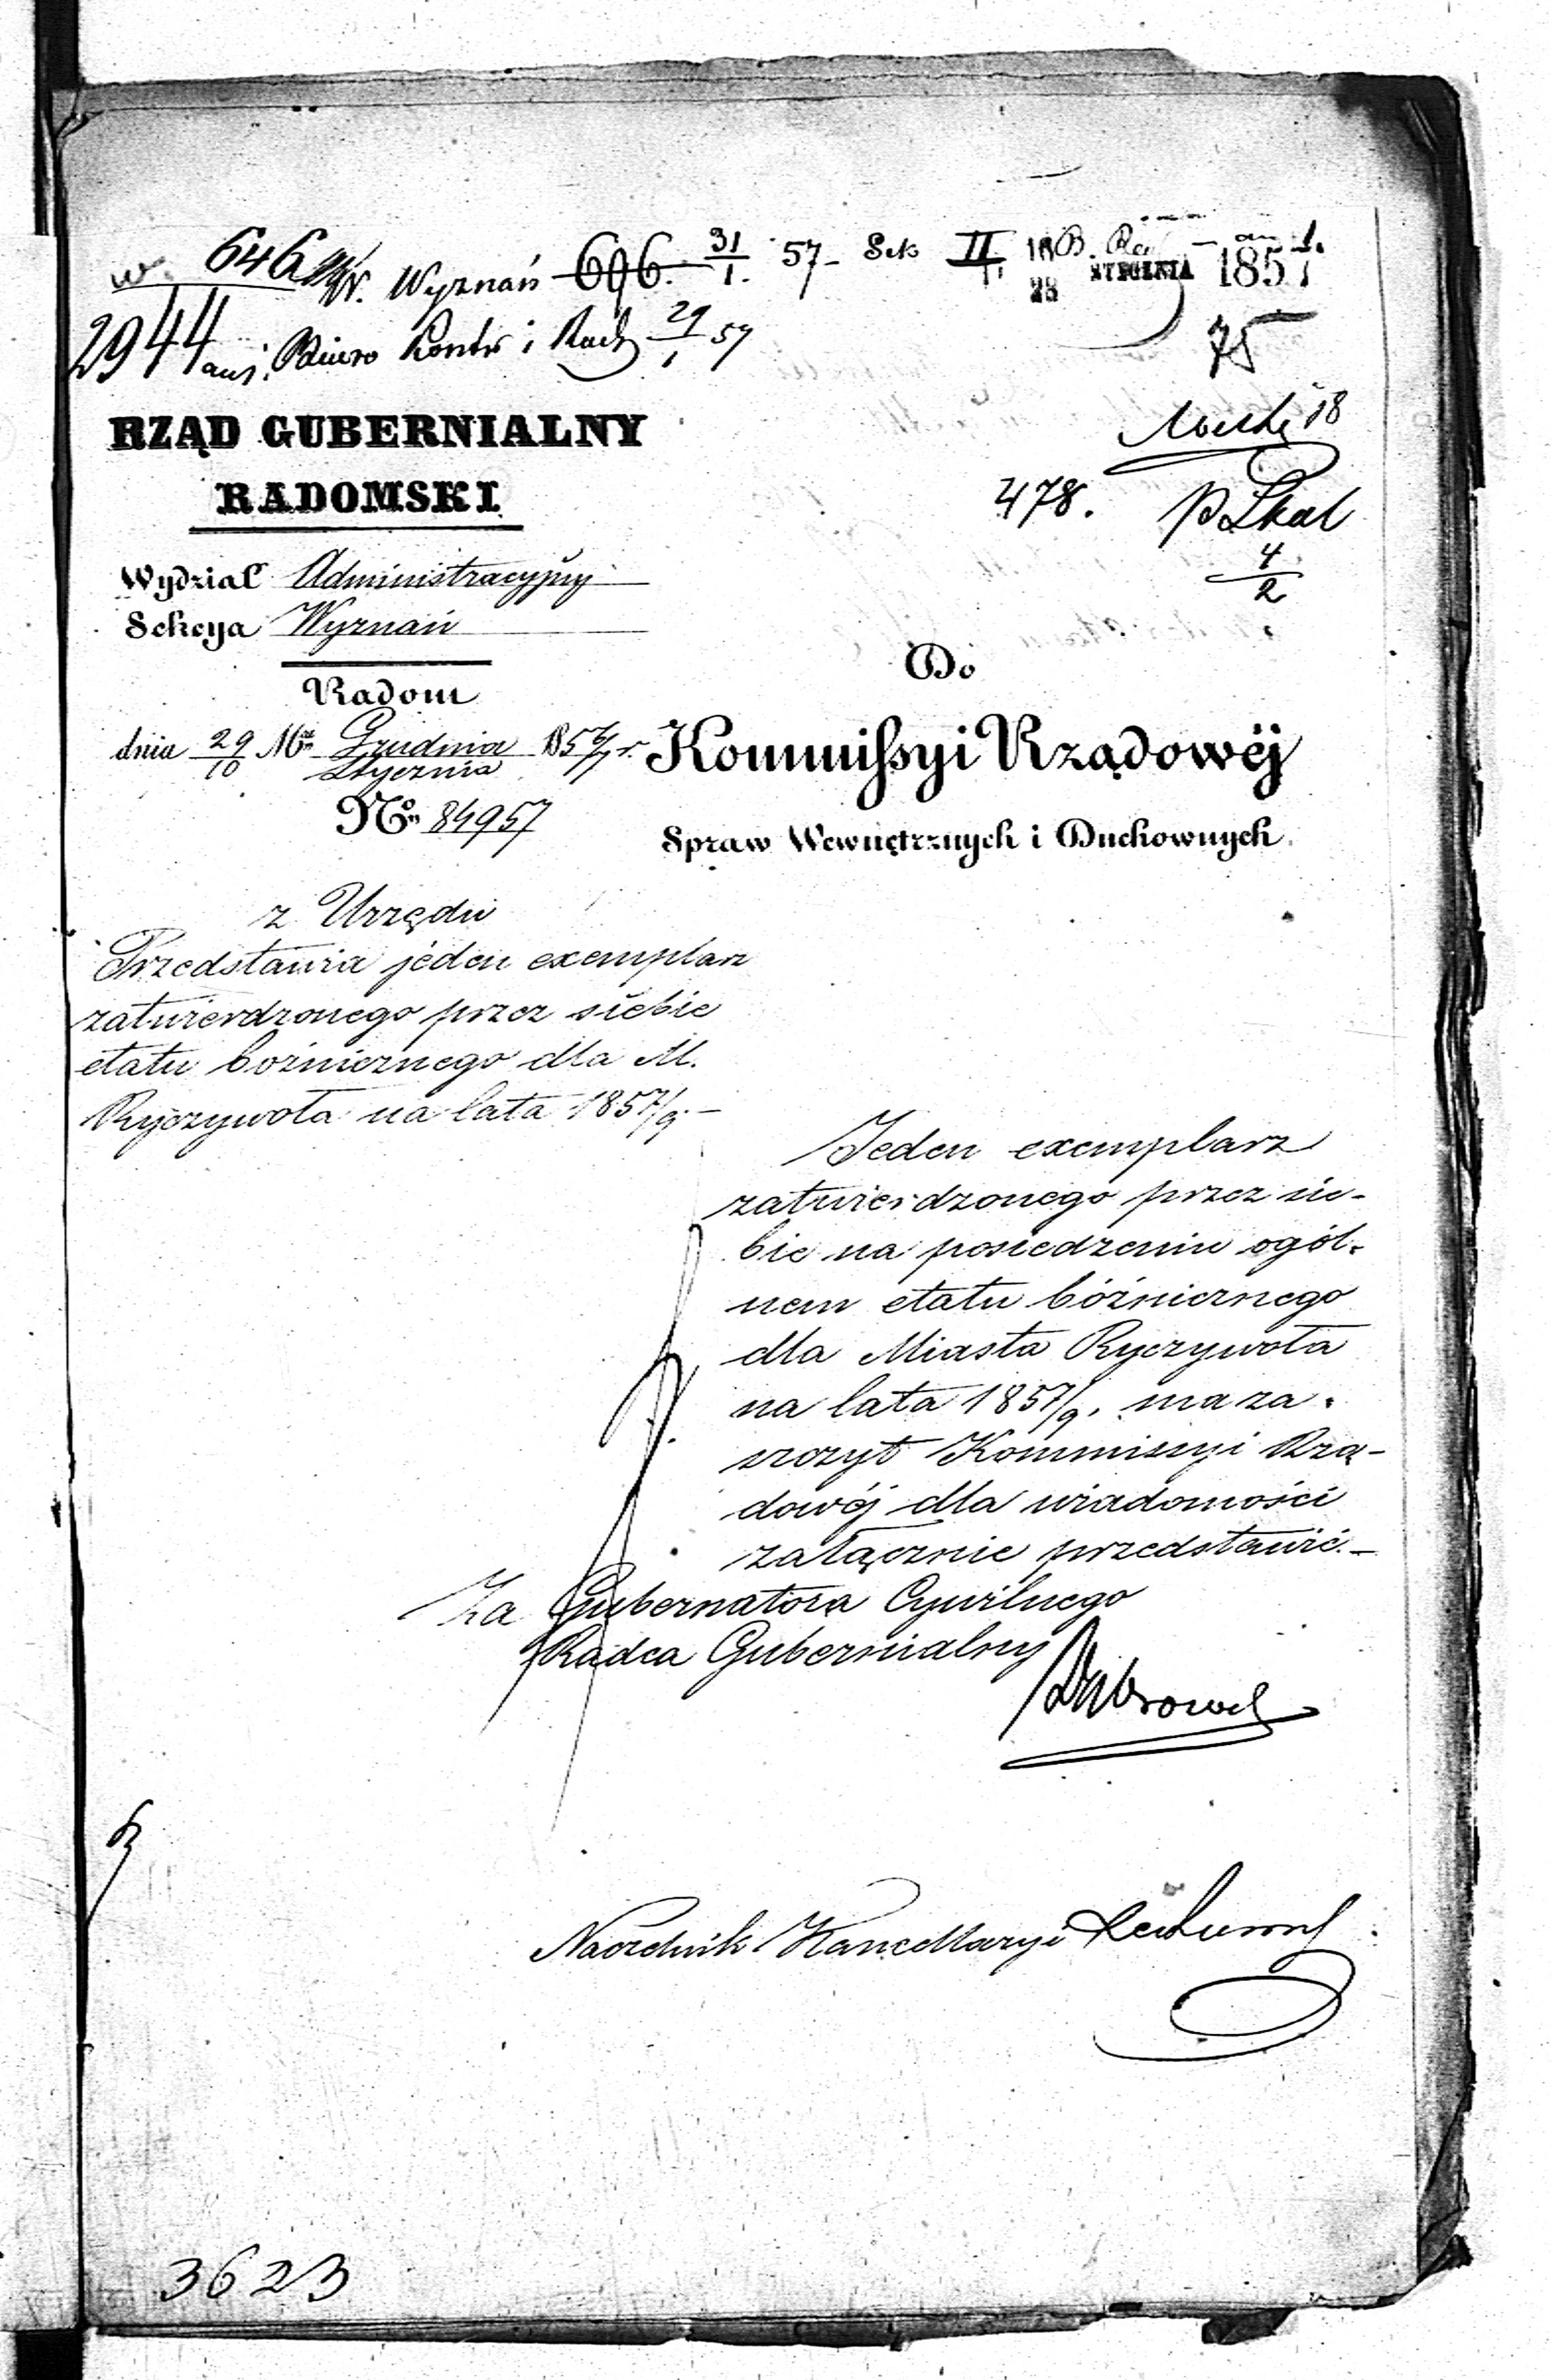 w. 646
W. Wyznań 696. 31/1. 57 - Sek II
28 STYCZNIA 1857
2944 Biuro Kontr i Rach 29/1 57
75
RZĄD GUBERNIALNY
RADOMSKI
18
478.
4/2
Wydział Administracyjny
Sekcya Wyznań
Radom
dnia 29/10 Mca Grudnia/Stycznia 1856/7 r.
No 84957
Do
Kommissyi Rządowéj
Spraw Wewnętrznych i Duchownych.
z Urzędu
Przedstawia jeden exemplarz
zatwierdzonego przez siebie
etatu bożnicznego dla M.
Ryczywoła na lata 1857/9. -
Jeden exemplarz
zatwierdzonego przez sie-
bie na posiedzeniu ogól-
nem etatu bóżnicznego
dla Miasta Ryczywoła
na lata 1857/9. ma za-
szczyt Kommissyi Rzą-
dowéj dla wiadomości
załącznie przedstawić. -
Za Gubernatora Cywilnego
Radca Gubernialny
Naczelnik Kancellaryi
3623